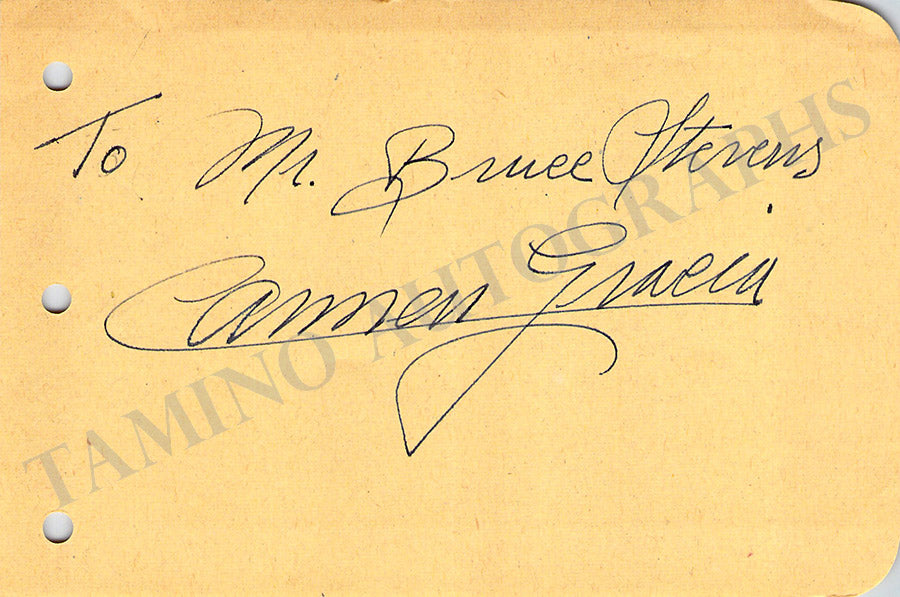 To Mr. Bruce Stevens
Carmen Gracia
TAMINO AUTOGRAPHS